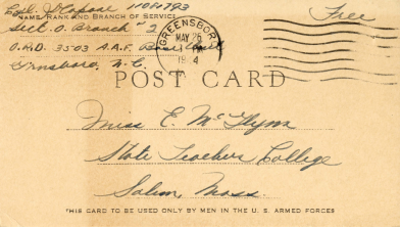 Free
NAME, RANK AND BRANCH OF SERVICE
Sect. O. Branch # 2
O.R.D. 3503 A.A.F. Base Unit
Grnsboro, N.C.
GREENSBORO
MAY 26
PM
POST CARD
Miss E. McGlynn
State Teachers College
Salem, Mass.
THIS CARD TO BE USED ONLY BY MEN IN THE U. S. ARMED FORCES